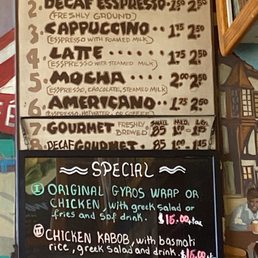 2. DECAF ESSPRESSO 2.50 2.50
(FRESHLY GROUND)
3. CAPPUCCINO.. 1.75 2.50
(ESSPRESSO WITH FOAMED MILK)
4. LATTE ........ 1.75 2.50
(ESSPRESSO WITH STEAMED MILK)
5. MOCHA ..... 2.00 2.50
(ESSPRESSO, CHOCOLATE, STEAMED MILK)
6. AMERICANO .. 1.25 2.50
(ESSPRESSO, HOT WATER, OR COFFEE)
SMALL MED. LG.
7. GOURMET FRESHLY BREWED .85 1.10
8. DECAF GOURMET .85
SPECIAL
I ORIGINAL GYROS WRAP OR
CHICKEN, with greek salad or
fries and 5of drink. $15.00+tax
II CHICKEN KABOB, with basmati
rice, greek salad and drink. $15.00